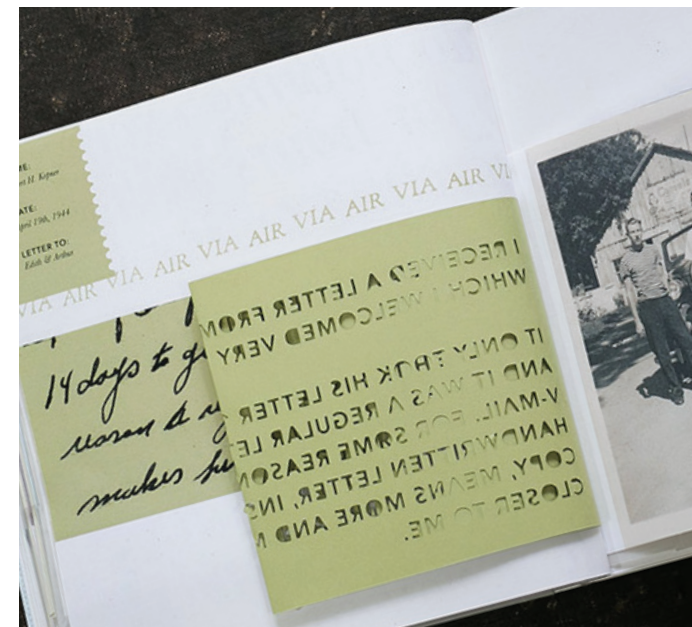 ME:
H. Kepner
ATE:
April 19th, 1944
LETTER TO:
Edith & Arthur
VIA AIR VIA AIR VIA AIR VIA AIR VIA AIR VI
14 days to
reason
makes
I RECEIVED A LETTER FROM
WHICH I WELCOMED VERY
IT ONLY TOOK HIS LETTER
AND IT WAS A REGULAR LE
V-MAIL. FOR SOME REASON
HANDWRITTEN LETTER, INS
COPY, MEANS MORE AND M
CLOSER TO ME.